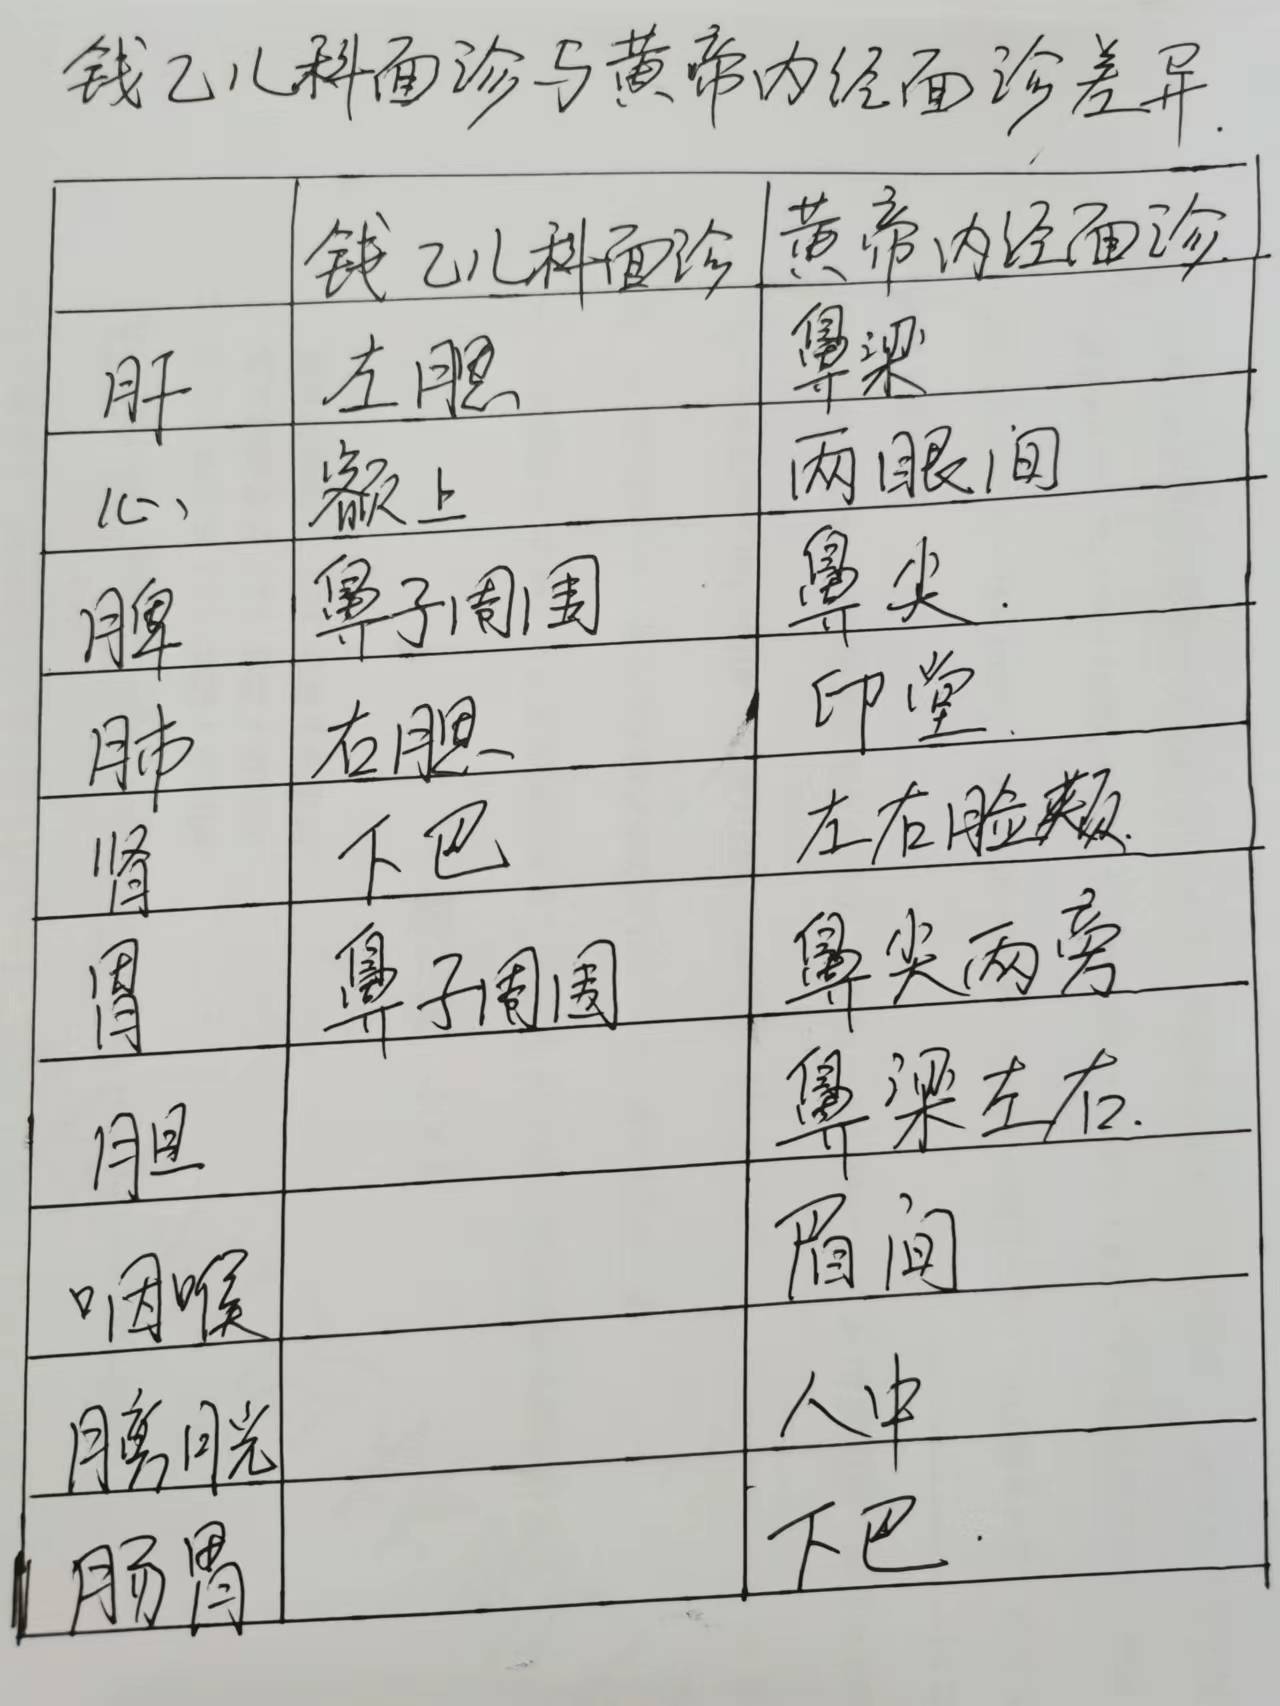 钱乙儿科面诊与黄帝内经面诊差异.
钱乙儿科面诊 黄帝内经面诊.
肝 左腮 鼻梁
心 额上 两眼间
脾 鼻子周围 鼻尖.
肺 右腮 印堂.
肾 下巴 左右脸颊.
胃 鼻子周围 鼻尖两旁
胆 鼻梁左右.
咽喉 眉间
膀胱 人中
肠胃 下巴.